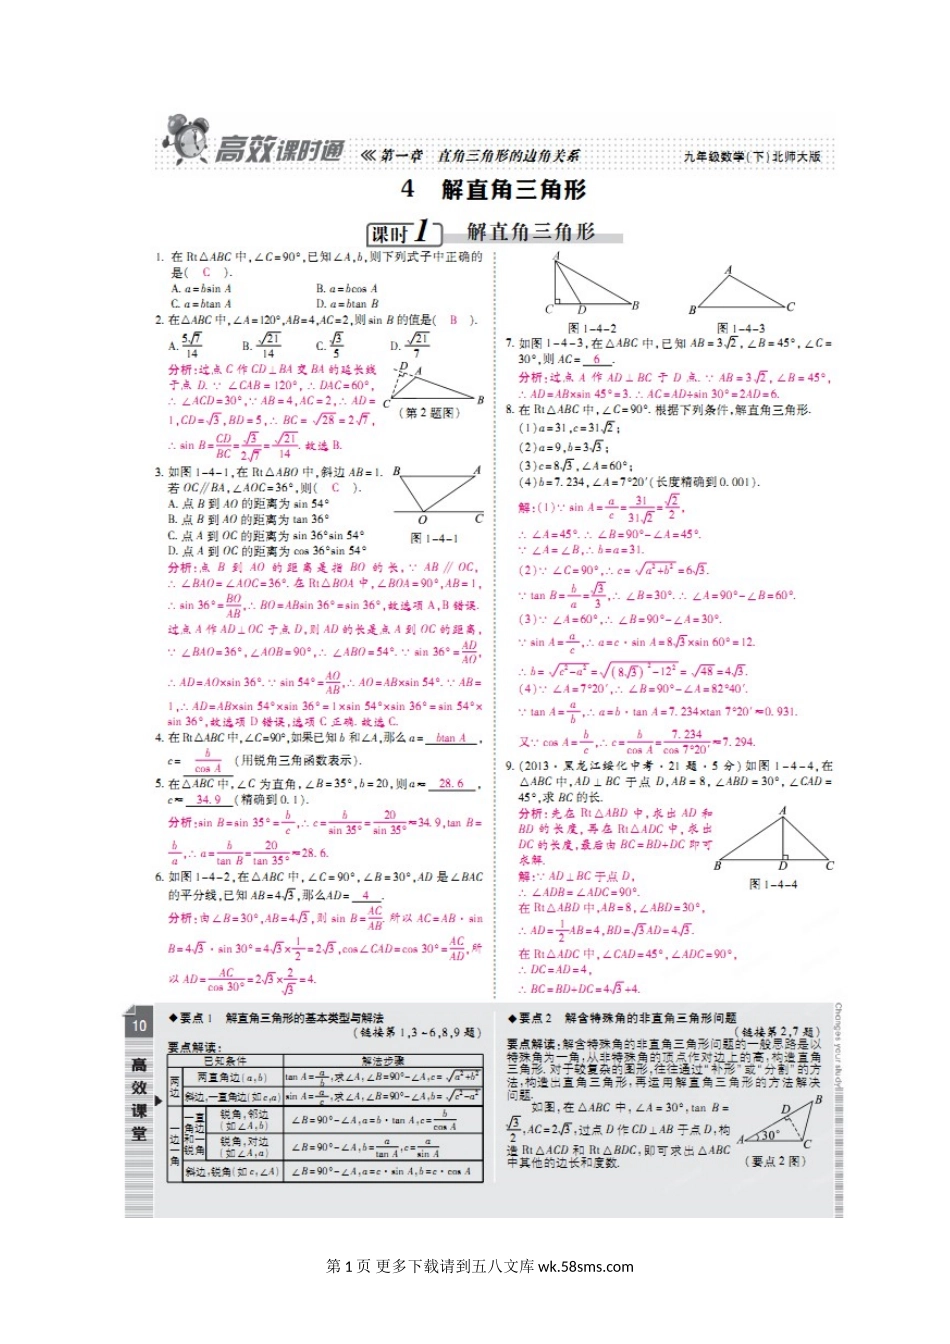 高效课时通 ≪ 第一章 直角三角形的边角关系 九年级数学(下)北师大版
4 解直角三角形
课时1 解直角三角形
1. 在 Rt△ABC 中,∠C=90°,已知∠A,b,则下列式子中正确的
是( C ).
A. a=bsin A B. a=bcos A
C. a=btan A D. a=btan B
2. 在△ABC 中,∠A=120°,AB=4,AC=2,则 sin B 的值是( B ).
A. 5√7/14 B. √21/14 C. √3/5 D. √21/7
分析:过点 C 作 CD⊥BA 交 BA 的延长线
于点 D. ∵ ∠CAB=120°,∴ DAC=60°,
∴ ∠ACD=30°,∵ AB=4,AC=2,∴ AD=
1,CD=√3,BD=5,∴ BC= √28=2√7,
∴ sin B=CD/BC=√3/2√7=√21/14. 故选 B.
D A C B
(第 2 题图)
3. 如图 1-4-1,在 Rt△ABO 中,斜边 AB=1.
若 OC∥BA,∠AOC=36°,则( C ).
A. 点 B 到 AO 的距离为 sin 54°
B. 点 B 到 AO 的距离为 tan 36°
C. 点 A 到 OC 的距离为 sin 36°sin 54°
D. 点 A 到 OC 的距离为 cos 36°sin 54°
B A O C
图 1-4-1
分析:点 B 到 AO 的距离是指 BO 的长,∵ AB∥OC,
∴ ∠BAO=∠AOC=36°. 在 Rt△BOA 中,∠BOA=90°,AB=1,
∴ sin 36°=BO/AB,∴ BO=ABsin 36°=sin 36°,故选项 A,B 错误.
过点 A 作 AD⊥OC 于点 D,则 AD 的长是点 A 到 OC 的距离,
∵ ∠BAO=36°,∠AOB=90°,∴ ∠ABO=54°. ∵ sin 36°=AD/AO,
∴ AD=AO×sin 36°. ∵ sin 54°=AO/AB,∴ AO=AB×sin 54°. ∵ AB=
1,∴ AD=AB×sin 54°×sin 36°=1×sin 54°×sin 36°=sin 54°×
sin 36°,故选项 D 错误,选项 C 正确. 故选 C.
4. 在 Rt△ABC 中,∠C=90°,如果已知 b 和∠A,那么 a= btan A ,
c= b/cos A (用锐角三角函数表示).
5. 在△ABC 中,∠C 为直角,∠B=35°,b=20,则 a≈ 28.6 ,
c≈ 34.9 (精确到 0.1).
分析:sin B=sin 35°=b/c,∴ c=b/sin 35°=20/sin 35°≈34.9,tan B=
b/a,∴ a=b/tan B=20/tan 35°≈28.6.
6. 如图 1-4-2,在△ABC 中,∠C=90°,∠B=30°,AD 是∠BAC
的平分线,已知 AB=4√3,那么AD= 4 .
分析:由∠B=30°,AB=4√3,则 sin B=AC/AB. 所以 AC=AB·sin
B=4√3·sin 30°=4√3×1/2=2√3,cos∠CAD=cos 30°=AC/AD,所
以 AD=AC/cos 30°=2√3×2/√3=4.
A C D B
图 1-4-2
A B C
图 1-4-3
7. 如图 1-4-3,在△ABC 中,已知 AB=3√2,∠B=45°,∠C=
30°,则 AC= 6 .
分析:过点 A 作 AD⊥BC 于 D 点. ∵ AB=3√2,∠B=45°,
∴ AD=AB×sin 45°=3. ∴ AC=AD÷sin 30°=2AD=6.
8. 在 Rt△ABC 中,∠C=90°. 根据下列条件,解直角三角形.
(1)a=31,c=31√2;
(2)a=9,b=3√3;
(3)c=8√3,∠A=60°;
(4)b=7.234,∠A=7°20′(长度精确到 0.001).
解:(1)∵ sin A=a/c=31/31√2=√2/2,
∴ ∠A=45°. ∴ ∠B=90°-∠A=45°.
∵ ∠A=∠B,∴ b=a=31.
(2)∵ ∠C=90°,∴ c= √a²+b²=6√3.
∵ tan B=b/a=√3/3,∴ ∠B=30°. ∴ ∠A=90°-∠B=60°.
(3)∵ ∠A=60°,∴ ∠B=90°-∠A=30°.
∵ sin A=a/c,∴ a=c·sin A=8√3×sin 60°=12.
∴ b= √c²-a²=√(8√3)²-12²=√48=4√3.
(4)∵ ∠A=7°20′,∴ ∠B=90°-∠A=82°40′.
∵ tan A=a/b,∴ a=b·tan A=7.234×tan 7°20′≈0.931.
又∵ cos A=b/c,∴ c=b/cos A=7.234/cos 7°20′≈7.294.
9. (2013·黑龙江绥化中考·21 题·5 分)如图 1-4-4,在
△ABC 中,AD⊥BC 于点 D,AB=8,∠ABD=30°,∠CAD=
45°,求 BC 的长.
分析:先在 Rt△ABD 中,求出 AD 和
BD 的长度,再在 Rt△ADC 中,求出
DC 的长度,最后由 BC=BD+DC 即可
求解.
解:∵ AD⊥BC 于点 D,
∴ ∠ADB=∠ADC=90°.
在 Rt△ABD 中,AB=8,∠ABD=30°,
∴ AD=1/2AB=4,BD=√3AD=4√3.
在 Rt△ADC 中,∠CAD=45°,∠ADC=90°,
∴ DC=AD=4,
∴ BC=BD+DC=4√3+4.
A B D C
图 1-4-4
10
高效课堂
◆要点 1 解直角三角形的基本类型与解法
(链接第 1,3~6,8,9 题)
要点解读:
已知条件 解法步骤
两边 两直角边(a,b) tan A=a/b,求∠A,∠B=90°-∠A,c=√a²+b²
斜边,一直角边(如c,a) sin A=a/c,求∠A,∠B=90°-∠A,b=√c²-a²
一边一角 一直角边和一锐角 锐角,邻边(如∠A,b) ∠B=90°-∠A,a=b·tan A,c=b/cos A
锐角,对边(如∠A,a) ∠B=90°-∠A,b=a/tan A,c=a/sin A
斜边,锐角(如c,∠A) ∠B=90°-∠A,a=c·sin A,b=c·cos A
◆要点 2 解含特殊角的非直角三角形问题
(链接第 2,7 题)
要点解读:解含特殊角的非直角三角形问题的一般思路是以
特殊角为一角,从非特殊角的顶点作对边上的高,构造直角
三角形. 对于较复杂的图形,往往通过“补形”或“分割”的方
法,构造出直角三角形,再运用解直角三角形的方法解决
问题.
如图,在△ABC 中,∠A=30°,tan B=
√3/2,AC=2√3,过点 D 作 CD⊥AB 于点 D,构
造 Rt△ACD 和 Rt△BDC,即可求出△ABC
中其他的边长和度数.
B D A 30° C
(要点 2 图)
Changes your study
第 1 页 更多下载请到五八文库 wk.58sms.com